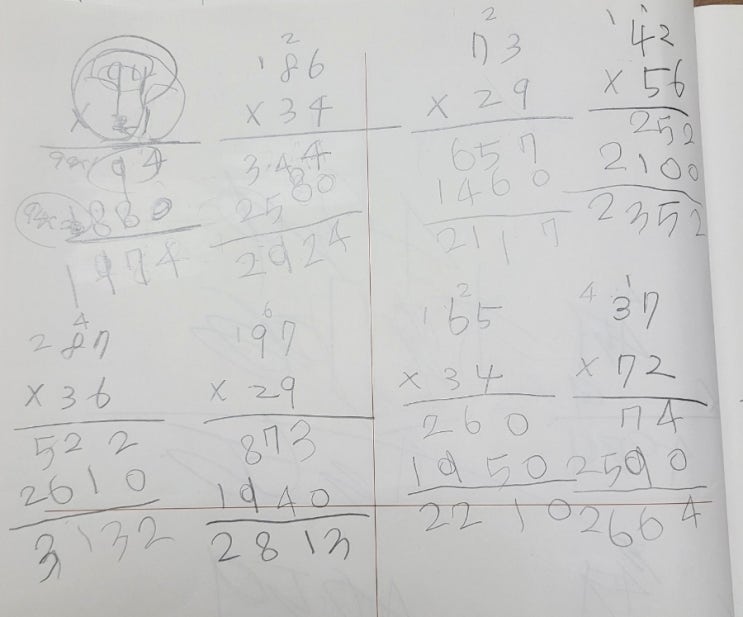 94
1880
1974
2
1 86
× 34
344
2580
2924
2
73
× 29
657
1460
2117
1
1 42
× 56
252
2100
2352
4
2 87
× 36
522
2610
3132
6
1 97
× 29
873
1940
2813
2
1 65
× 34
260
1950
2210
1
4 37
× 72
74
2590
2664